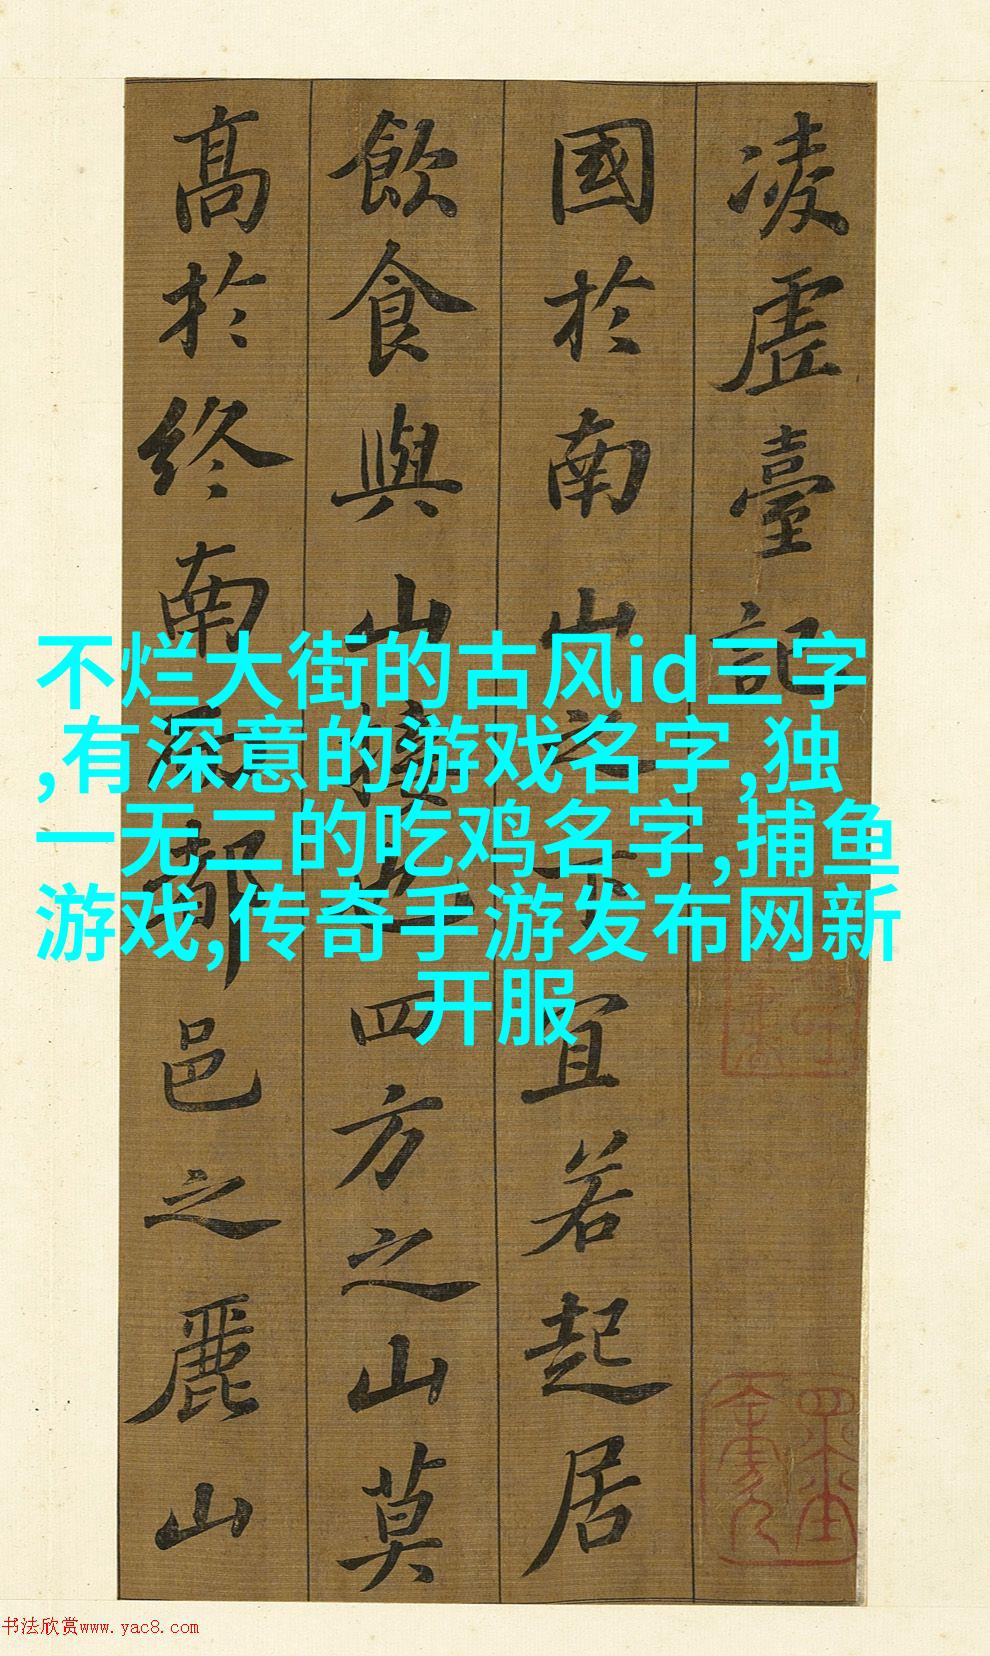 凌虛臺記
國於南山之下宜若起居
飲食與山接也四方之山莫
高於終南而都邑之麗山
不烂大街的古风id三字
,有深意的游戏名字,独
一无二的吃鸡名字,捕鱼
游戏,传奇手游发布网新
开服
书法欣赏www.yac8.com